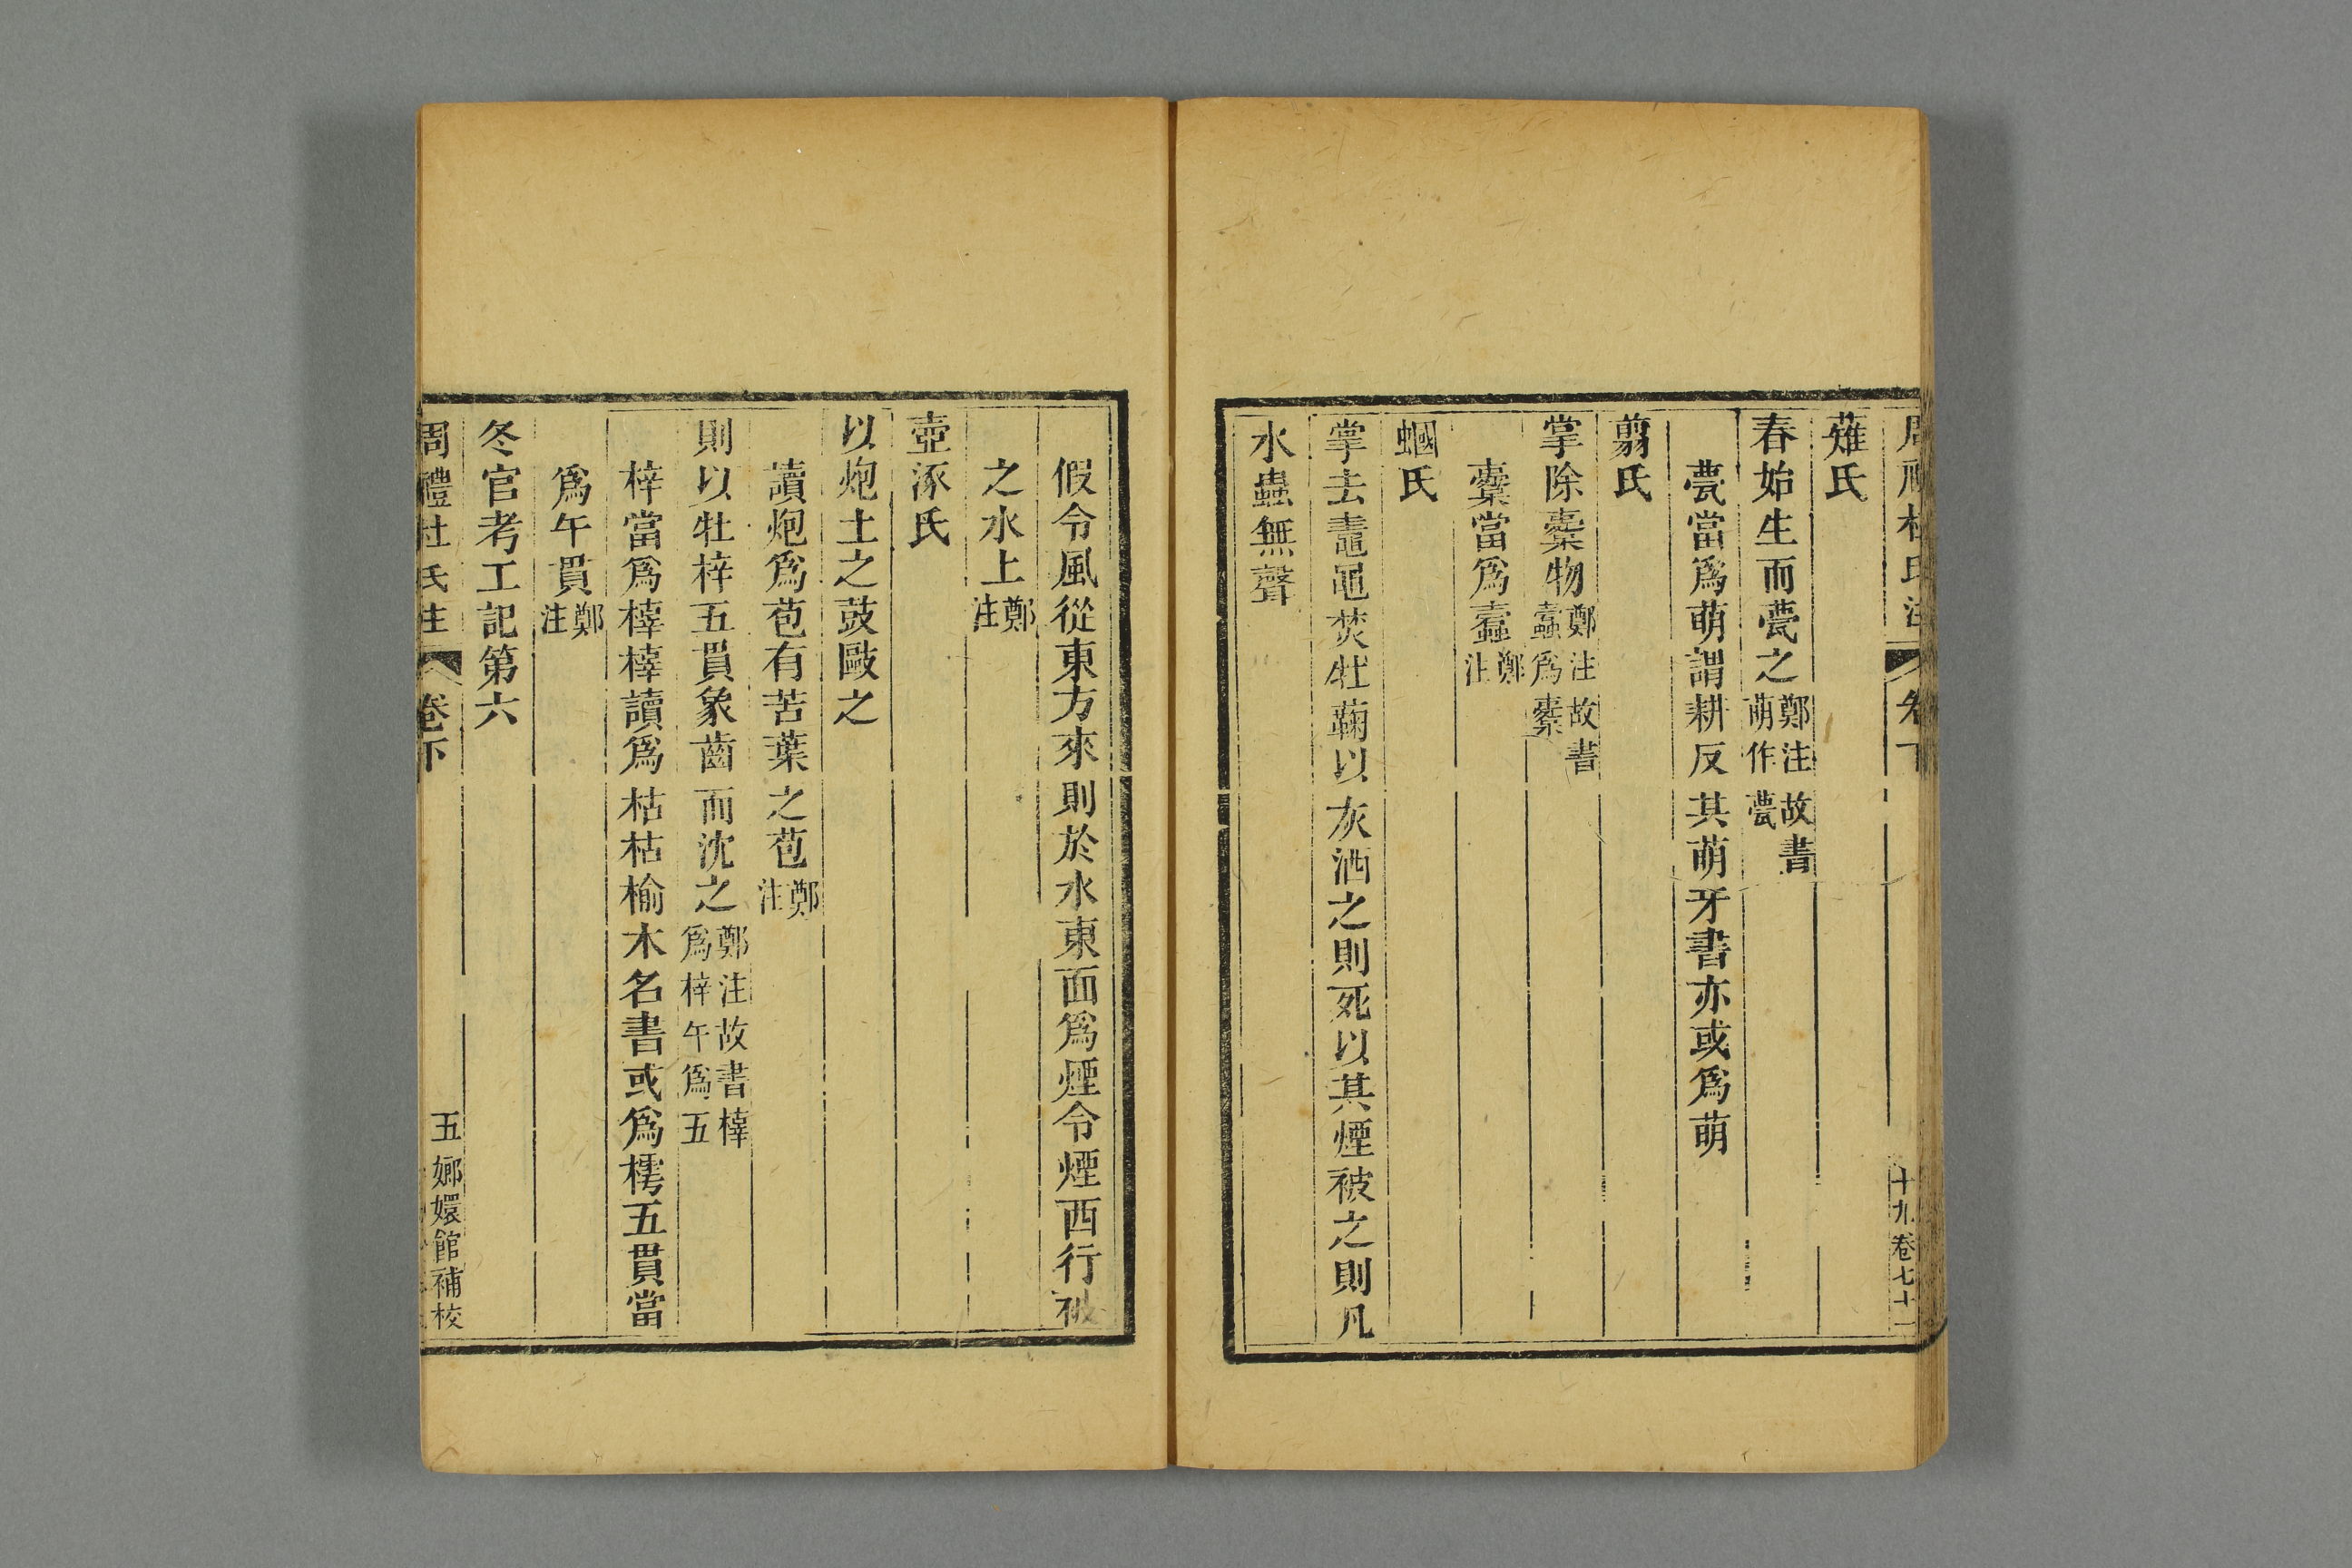 周禮杜氏注 卷下 十九 卷七十一
薙氏
春始生而甍之鄭注故書萌作甍
甍當爲萌謂耕反其萌牙書亦或爲萌
翦氏
掌除橐物鄭注故書蠹爲橐
橐當爲蠹鄭注
蟈氏
掌去鼃黽焚牡蘜以灰洒之則死以其煙被之則凡
水蟲無聲
假令風從東方來則於水東面爲煙令煙西行被
之水上鄭注
壺涿氏
以炮土之鼓敺之
讀炮爲苞有苦葉之苞鄭注
則以牡梓五貫象齒而沈之鄭注故書橭爲梓午爲五
梓當爲橭橭讀爲枯枯榆木名書或爲樗五貫當
爲午貫鄭注
冬官考工記第六
周禮杜氏注 卷下 五 嫏嬛館補校